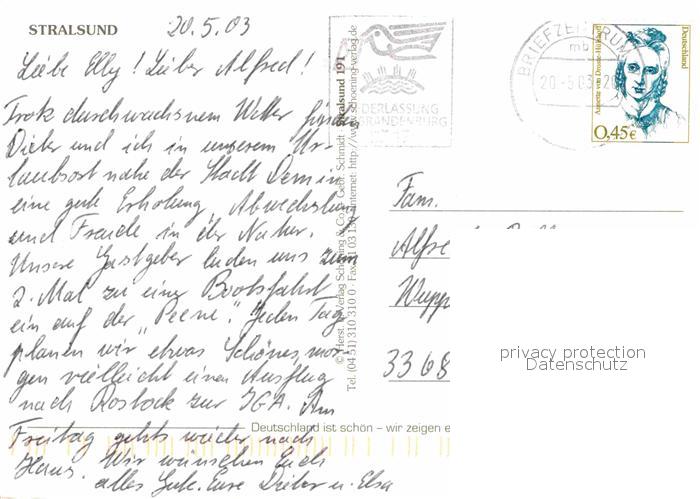 STRALSUND
20.5.03
Liebe Elly! Lieber Alfred!
Trotz durchwachsnem Wetter finden
Dieter und ich in unserem Ur-
laubsort nahe der Stadt Demmin
eine gute Erholung, Abwechslung
und Freude in der Natur.
Unsere Gastgeber luden uns zum
2. Mal zu einer Bootsfahrt
ein auf der "Peene". Jeden Tag
planen wir etwas Schönes, mor-
gen vielleicht einen Ausflug
nach Rostock zur IGA. Am
Freitag gehts wieder nach
Haus. Wir wünschen Euch
alles Gute. Eure Dieter u. Elsa
Deutschland ist schön – wir zeigen e
Stralsund 191
Tel. (04 51) 310 310 0
Internet: http://www.schoening-verlag.de
DERLASSUNG
BRANDENBURG
BRIEFZENTRUM
mb
20.-5.03
Annette von Droste-Hülshoff
Deutschland
0,45€
Fam.
Alfre
Wupp
3368
privacy protection
Datenschutz